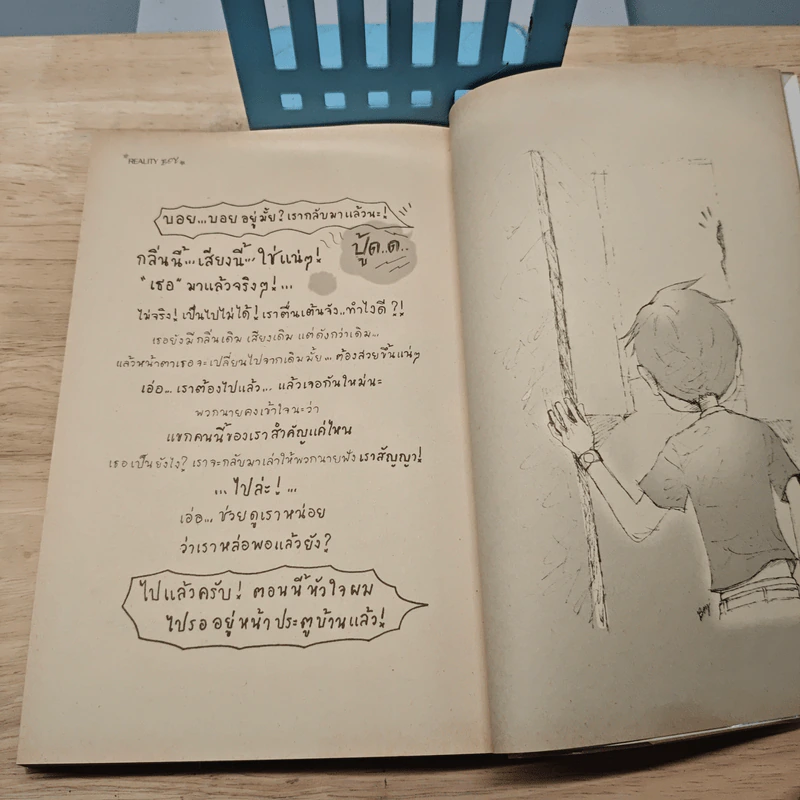 *REALITY
บอย...บอย อยู่มั้ย? เรากลับมาแล้วนะ!
กลิ่นนี้...เสียงนี้...ใช่แน่ๆ!
ปู้ด..ด..
"เธอ" มาแล้วจริงๆ!...
ไม่จริง! เป็นไปไม่ได้! เราตื่นเต้นจัง..ทำไงดี?!
เธอยังมีกลิ่นเดิม เสียงเดิม แต่ดังกว่าเดิม...
แล้วหน้าตาเธอจะเปลี่ยนไปจากเดิมมั้ย... ต้องสวยขึ้นแน่ๆ
เอ่อ... เราต้องไปแล้ว... แล้วเจอกันใหม่นะ
พวกนายคงเข้าใจนะว่า
แขกคนนี้ของเราสำคัญแค่ไหน
เธอเป็นยังไง? เราจะกลับมาเล่าให้พวกนายฟัง เราสัญญา!
...ไปล่ะ!...
เอ่อ... ช่วยดูเราหน่อย
ว่าเราหล่อพอแล้วยัง?
ไปแล้วครับ! ตอนนี้หัวใจผม
ไปรออยู่หน้าประตูบ้านแล้ว!